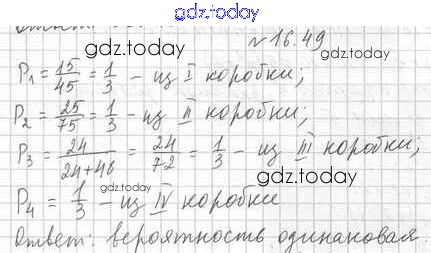 gdz.today
№16.49
gdz.today
P₁ = 15/45 = 1/3 – из I коробки;
P₂ = 25/75 = 1/3 – из II коробки;
gdz.today
P₃ = 24/24+48 = 24/72 = 1/3 – из III коробки;
gdz.today
gdz.today
P₄ = 1/3 – из IV коробки
Ответ: вероятность одинаковая.